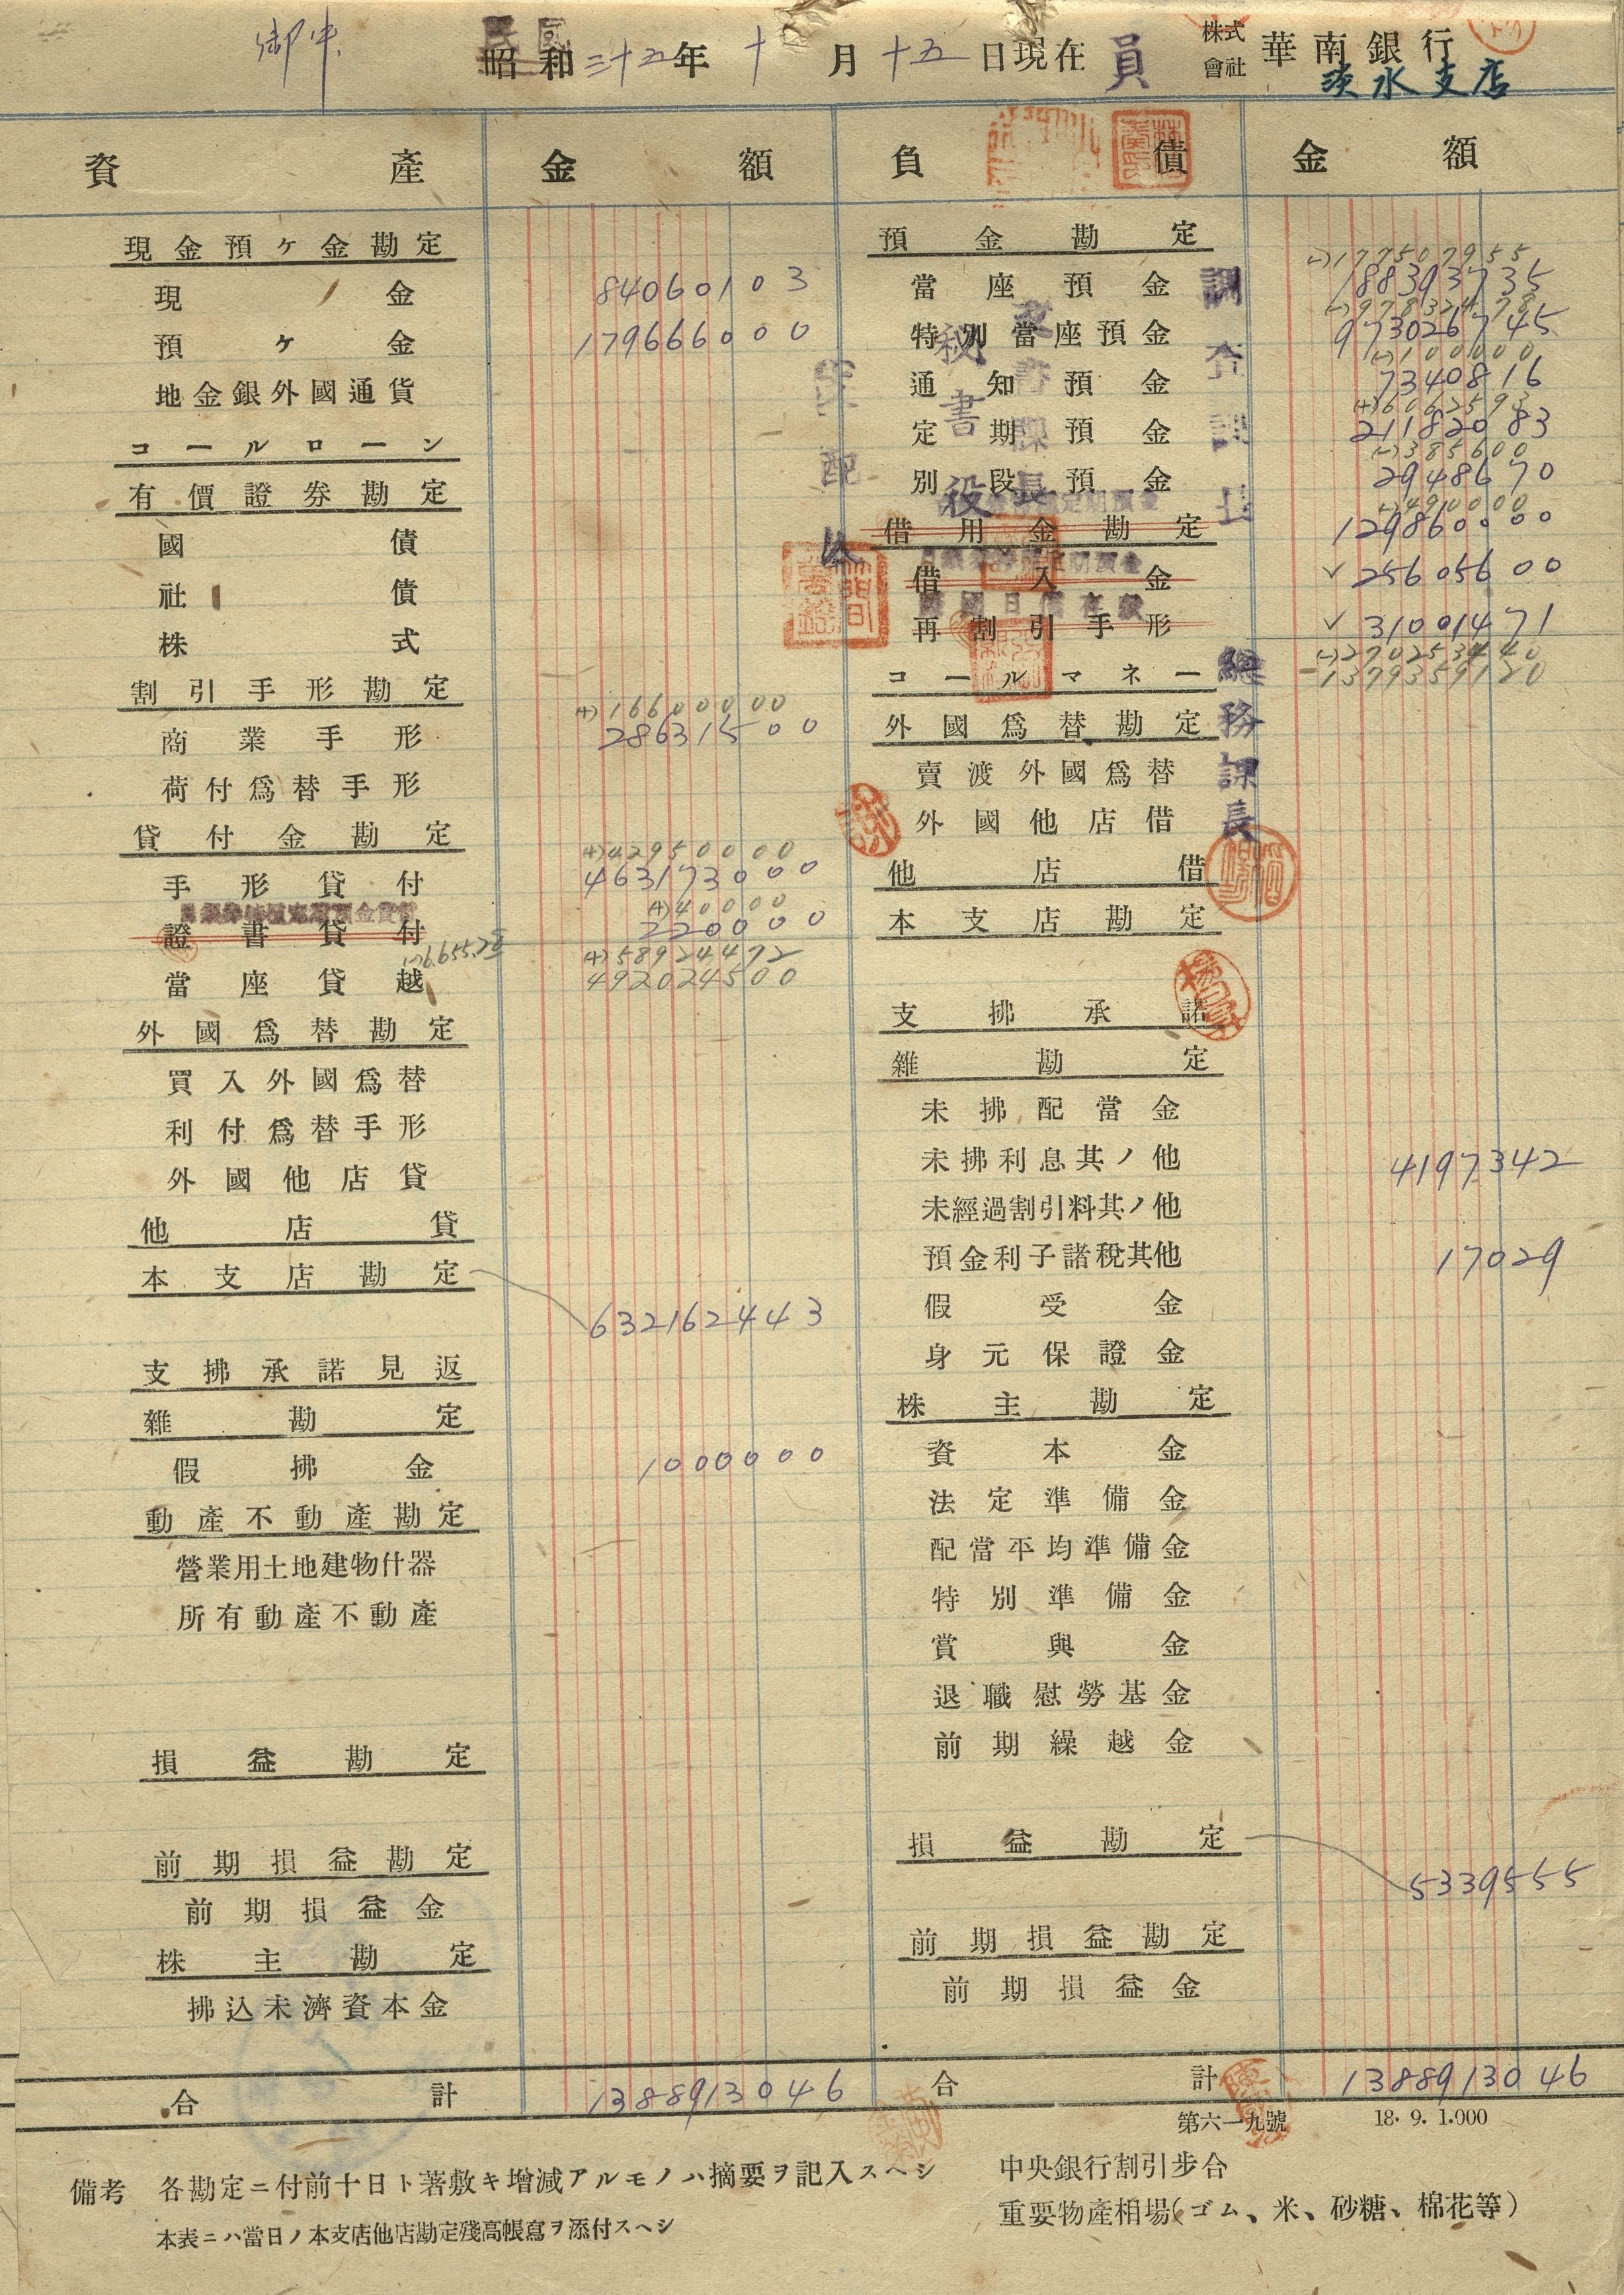 御中
民國 昭和三十五年十月十五日現在 員
株式會社 華南銀行
淡水支店
資產 金額 負債 金額
現金預ヶ金勘定
現金 84060103
預ヶ金 179666000
地金銀外國通貨
コールローン
有價證券勘定
國債
社債
株式
割引手形勘定
(+)16600000
商業手形 28631500
荷付爲替手形
貸付金勘定
(+)42950000
手形貸付 463173000
(+)40000
證書貸付 220000
(-)6.655.72
(+)58924472
當座貸越 492024500
外國爲替勘定
買入外國爲替
利付爲替手形
外國他店貸
他店貸
本支店勘定
632162443
支拂承諾見返
雜勘定
假拂金 1000000
動產不動產勘定
營業用土地建物什器
所有動產不動產
損益勘定
前期損益勘定
前期損益金
株主勘定
拂込未濟資本金
合計 1388913046
預金勘定
(-)177507955
當座預金 188393735
(-)97832478
特別當座預金 973026745
(-)100000
通知預金 7340816
(+)6062593
定期預金 21182083
(-)385600
別段預金 2948670
(-)490000
借用金勘定 129860000
借入金 25605600
再割引手形 31001471
(-)270253440
1379359120
コールマネー
外國爲替勘定
賣渡外國爲替
外國他店借
他店借
本支店勘定
支拂承諾
雜勘定
未拂配當金
未拂利息其ノ他 4197342
未經過割引料其ノ他
預金利子諸稅其他 17029
假受金
身元保證金
株主勘定
資本金
法定準備金
配當平均準備金
特別準備金
賞與金
退職慰勞基金
前期繰越金
損益勘定
5339555
前期損益勘定
前期損益金
合計 1388913046
調查課長
秘書役
秘書課長
總務課長
第六一九號 18.9.1.000
備考 各勘定ニ付前十日ト著敷キ增減アルモノハ摘要ヲ記入スヘシ
本表ニハ當日ノ本支店他店勘定殘高帳寫ヲ添付スヘシ
中央銀行割引步合
重要物產相場(ゴム、米、砂糖、棉花等)